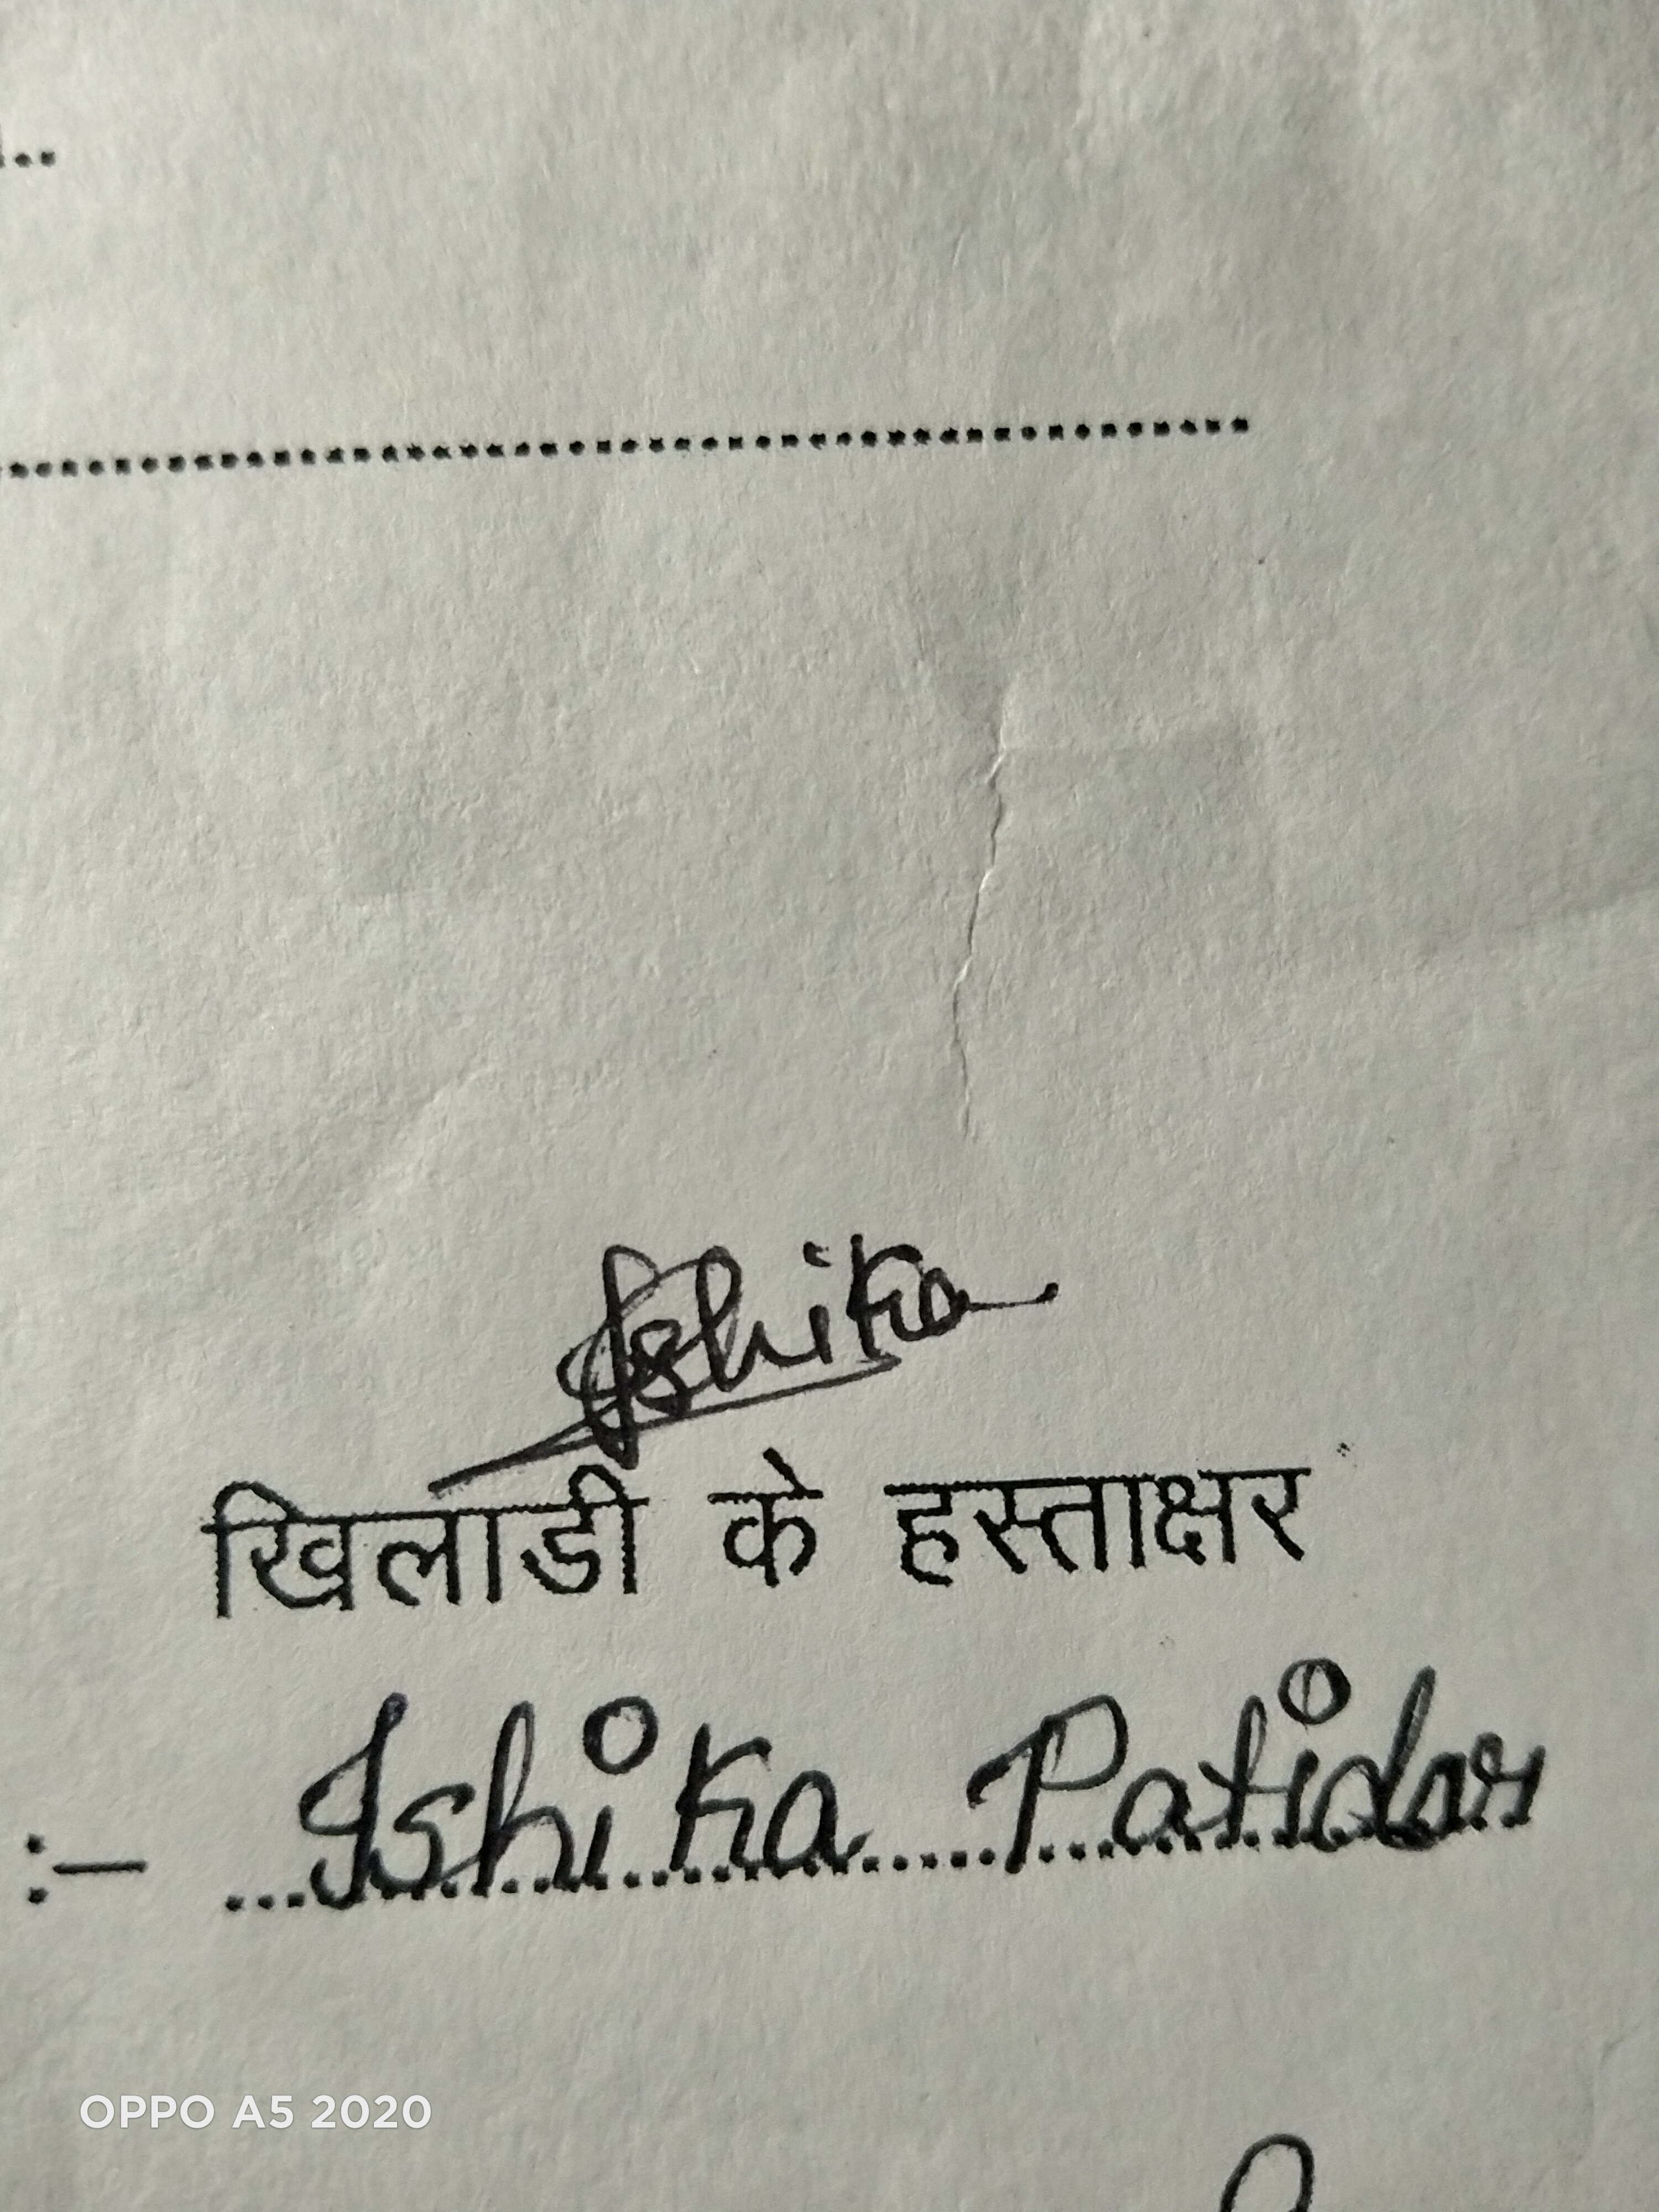 ..
................................................
Ishika
खिलाडी के हस्ताक्षर
:– ...Ishika Patidar
OPPO A5 2020